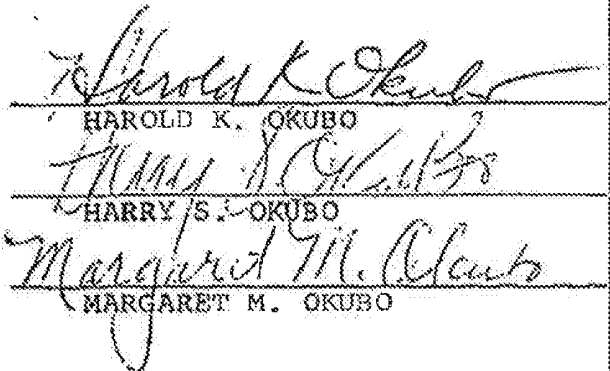 Harold K Okubo
HAROLD K. OKUBO
Harry S. Okubo
HARRY S. OKUBO
Margaret M. Okubo
MARGARET M. OKUBO